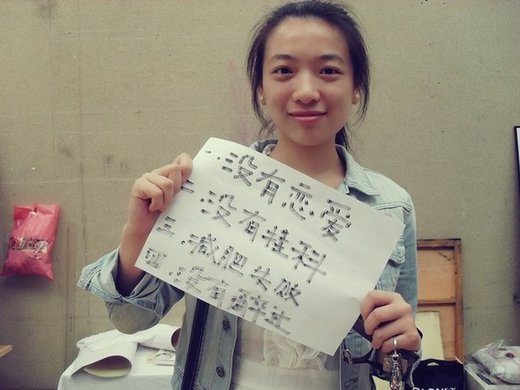 一.没有恋爱
二.没有挂科
三.减肥失败
四.没有